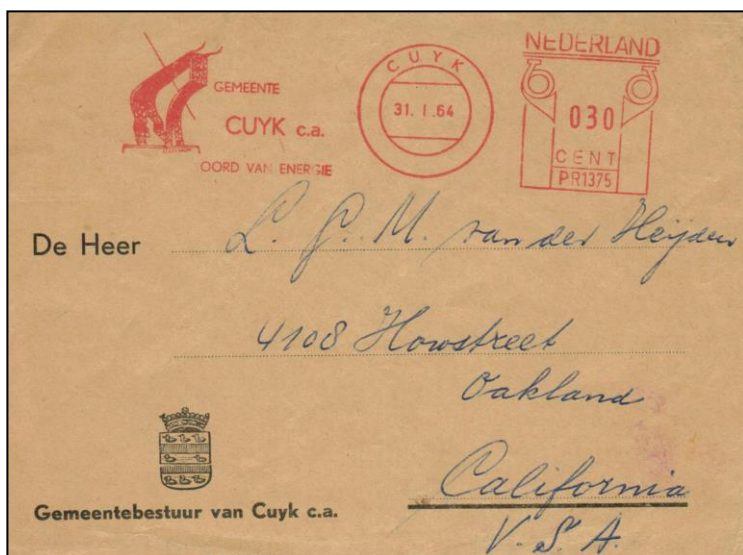 GEMEENTE
CUYK c.a.
OORD VAN ENERGIE
CUYK
31. I .64
NEDERLAND
030
CENT
PR1375
De Heer L. G. M. van der Heijden
4108 Howstreet
Oakland
California
V.S.A.
Gemeentebestuur van Cuyk c.a.